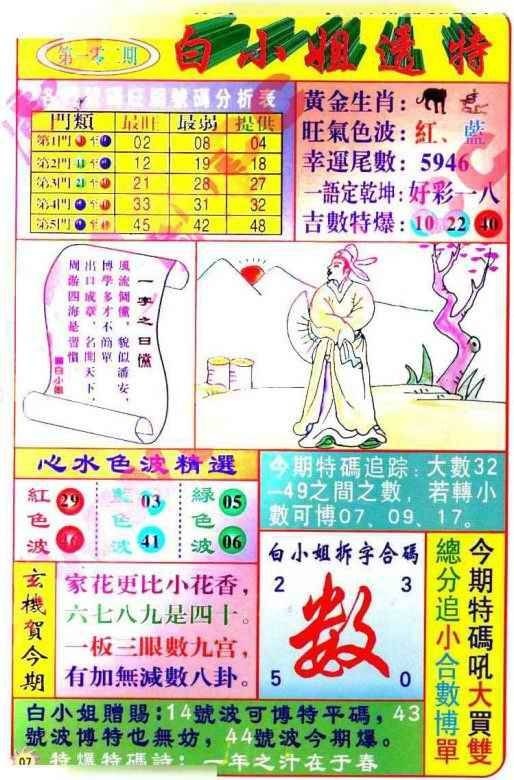 第一零二期
白小姐透特
號碼分析表
門類 最旺 最弱 提供
第1門 至 02 08 04
第2門 至 12 19 18
第3門 至 21 28 27
第4門 至 33 31 32
第5門 至 45 42 48
黃金生肖:
旺氣色波:紅、藍
幸運尾數:5946
一語定乾坤:好彩一八
吉數特爆:10 22 40
一字之曰儻
風流倜儻,貌似潘安,
博學多才不簡單
出口成章,名聞天下,
周游四海是習慣
白小姐
心水色波精選
紅色波 29 46
藍色波 03 41
綠色波 05 06
今期特碼追踪:大數32
—49之間之數,若轉小
數可博07、09、17。
玄機賀今期
家花更比小花香,
六七八九是四十。
一板三眼數九宫,
有加無減數八卦。
白小姐拆字合碼
2 3
數
5 0
今期特碼吼大買雙
總分追小合數博單
白小姐贈賜:14號波可博特平碼,43
號波博特也無妨,44號波今期爆。
07 特爆特碼詩:一年之汁在于春